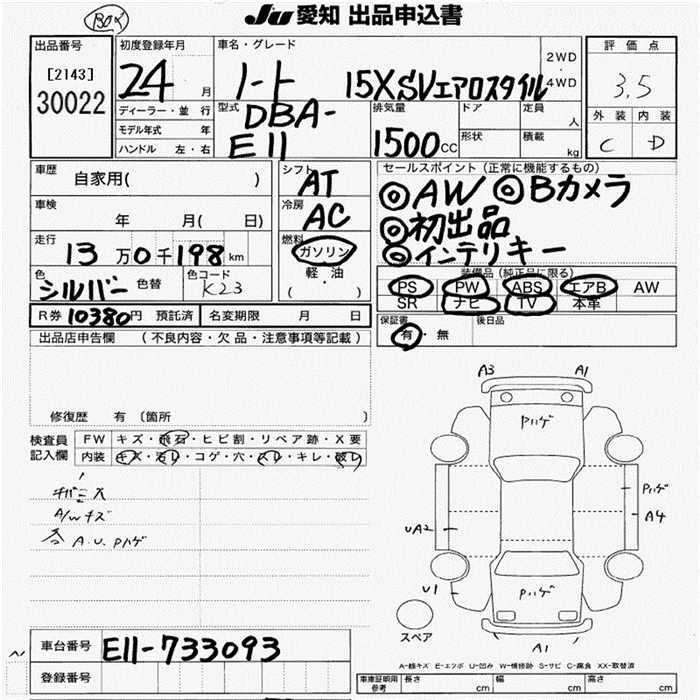 JU 愛知 出品申込書
出品番号
[2143]
30022
初度登録年月
24 月
ディーラー・並行
モデル年式 年
ハンドル 左・右
車名・グレード
ノート 15XSVエアロスタイル
2WD
・
4WD
型式
DBA-
E11
排気量
1500cc
ドア
形状
定員 人
積載 kg
評価点
3.5
外装 内装
C D
車歴
自家用( )
車検
年 月( 日)
走行
13万0千198km
色
シルバー 色替
色コード
K23
シフト
AT
冷房
AC
燃料
ガソリン
軽・油
( )
セールスポイント (正常に機能するもの)
◎AW ◎Bカメラ
◎初出品
◎インテリキー
装備品 (純正品に限る)
PS PW ABS エアB AW
SR ナビ TV 本革
R券 10380円 預託済 名変期限 月 日
保証書
有・無
後日品
出品店申告欄 (不良内容・欠品・注意事項等記載)
修復歴 有 〔箇所 〕
検査員
記入欄
FW キズ・飛石・ヒビ割・リペア跡・X要
内装 キズ・汚レ・コゲ・穴・スレ・キレ・破レ
A/Wキズ
各 A.U.Pハゲ
A3 A1
Pハゲ
Pハゲ
A4
UA2
U1
Pハゲ
A1
スペア
車台番号 E11-733093
登録番号
A-線キズ E-エクボ U-凹み W-補修跡 S-サビ C-腐食 XX-取替済
車庫証明用
参考
長さ cm 幅 cm 高さ cm